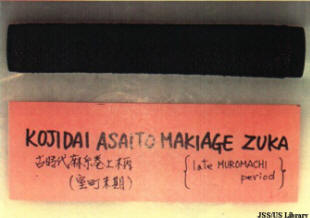 KOJIDAI ASAITO MAKIAGE ZUKA
古時代麻糸巻上柄
(室町末期)
{late MUROMACHI
period}
JSS/US Library